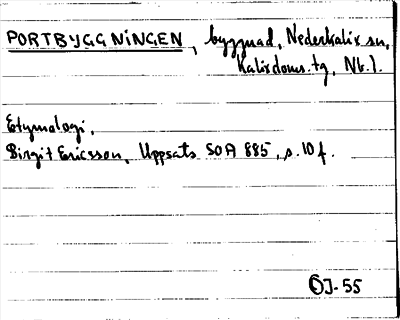 PORTBYGGNINGEN, byggnad, Nederkalix sn,
Kalixdoms. tg, Nb. l.
Etymologi,
Birgit Ericsson, Uppsats SOA 885, s. 10 f.
ÖJ-55